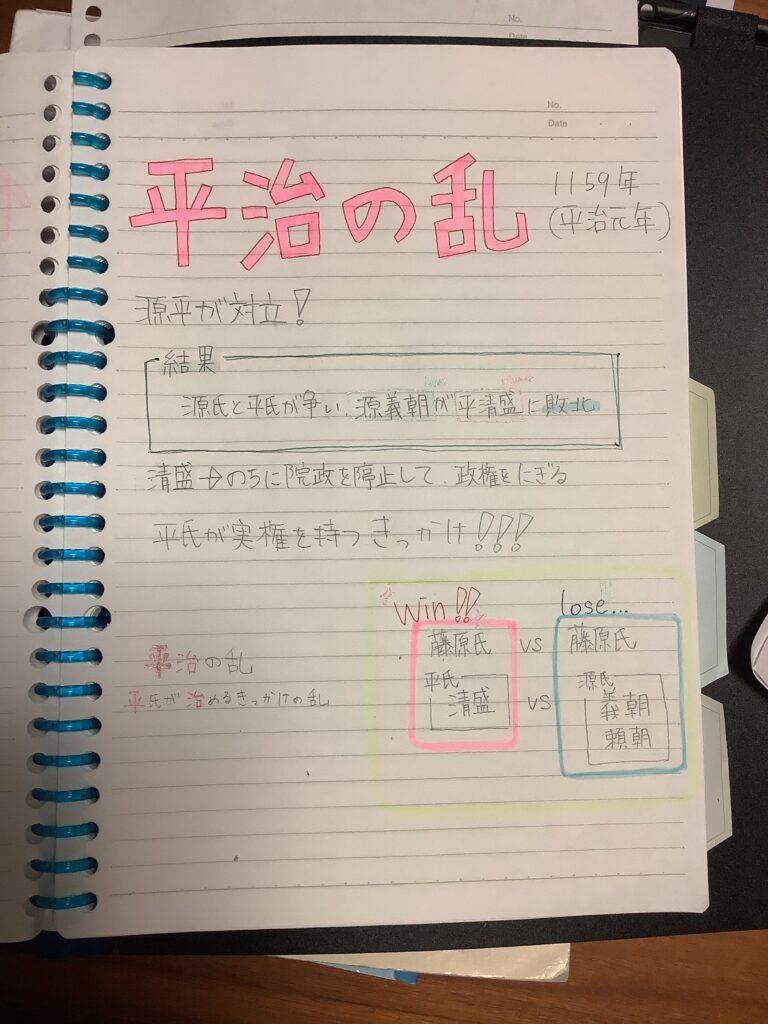 No.
Date
No.
Date
平治の乱
1159年
(平治元年)
源平が対立!
結果
源氏と平氏が争い、源義朝が平清盛に敗北。
清盛→のちに院政を停止して、政権をにぎる
平氏が実権を持つきっかけ!!!
win!! lose...
藤原氏 vs 藤原氏
平氏 源氏
清盛 vs 義朝
頼朝
平治の乱
平氏が治めるきっかけの乱